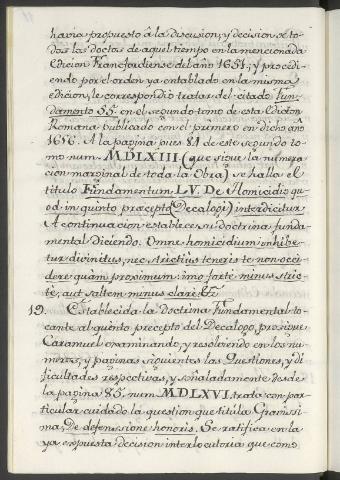 havia propuesto à la discusion, y decision de to-
dos los doctos de aquel tiempo en la mencionada
edicion Francfordiense del año 1651; y procedi-
endo por el orden ya entablado en la misma
edicion, le correspondiò tratar del citado Fun-
damento 55. en el segundo tomo de esta Edicion
Romana publicado con el primero en dicho año
1656. A la pagina pues 84 de este segundo to-
mo num. MDLXIII (que sigue la numera-
cion marginal de toda la Obra) se halla el
titulo Fundamentum LV. De Homicidio qu-
od in quinto præcepto (Decalogi) interdicitur
A continuacion establece su doctrina funda-
mental diciendo. Omne homicidium inhibe-
tur divinitus, nec strictiùs teneris te non occi-
dere quàm proximum: imo fortè minus stric-
te, aut saltem minus clarè &c.
19. Establecida la doctrina fundamental to-
cante al quinto precepto del Decalogo, prosigue
Caramuel examinando, y resolviendo en los nu-
meros, y paginas siguientes las Questiones, y di-
ficultades respectivas, y señaladamente desde
la pagina 85. num. MDLXVI. trata con par-
ticular cuidado la question que titùla Gravissi-
ma, De defenssione honoris. Se ratifica en la
ya expuesta decision interlocutoria que como